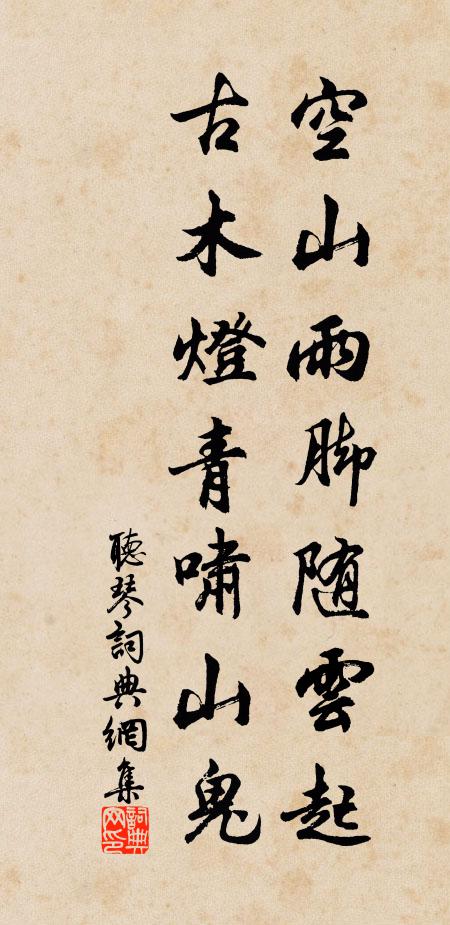 空山雨脚随雲起
古木燈青嘯山鬼
聽琴詞典網集
詞典网印